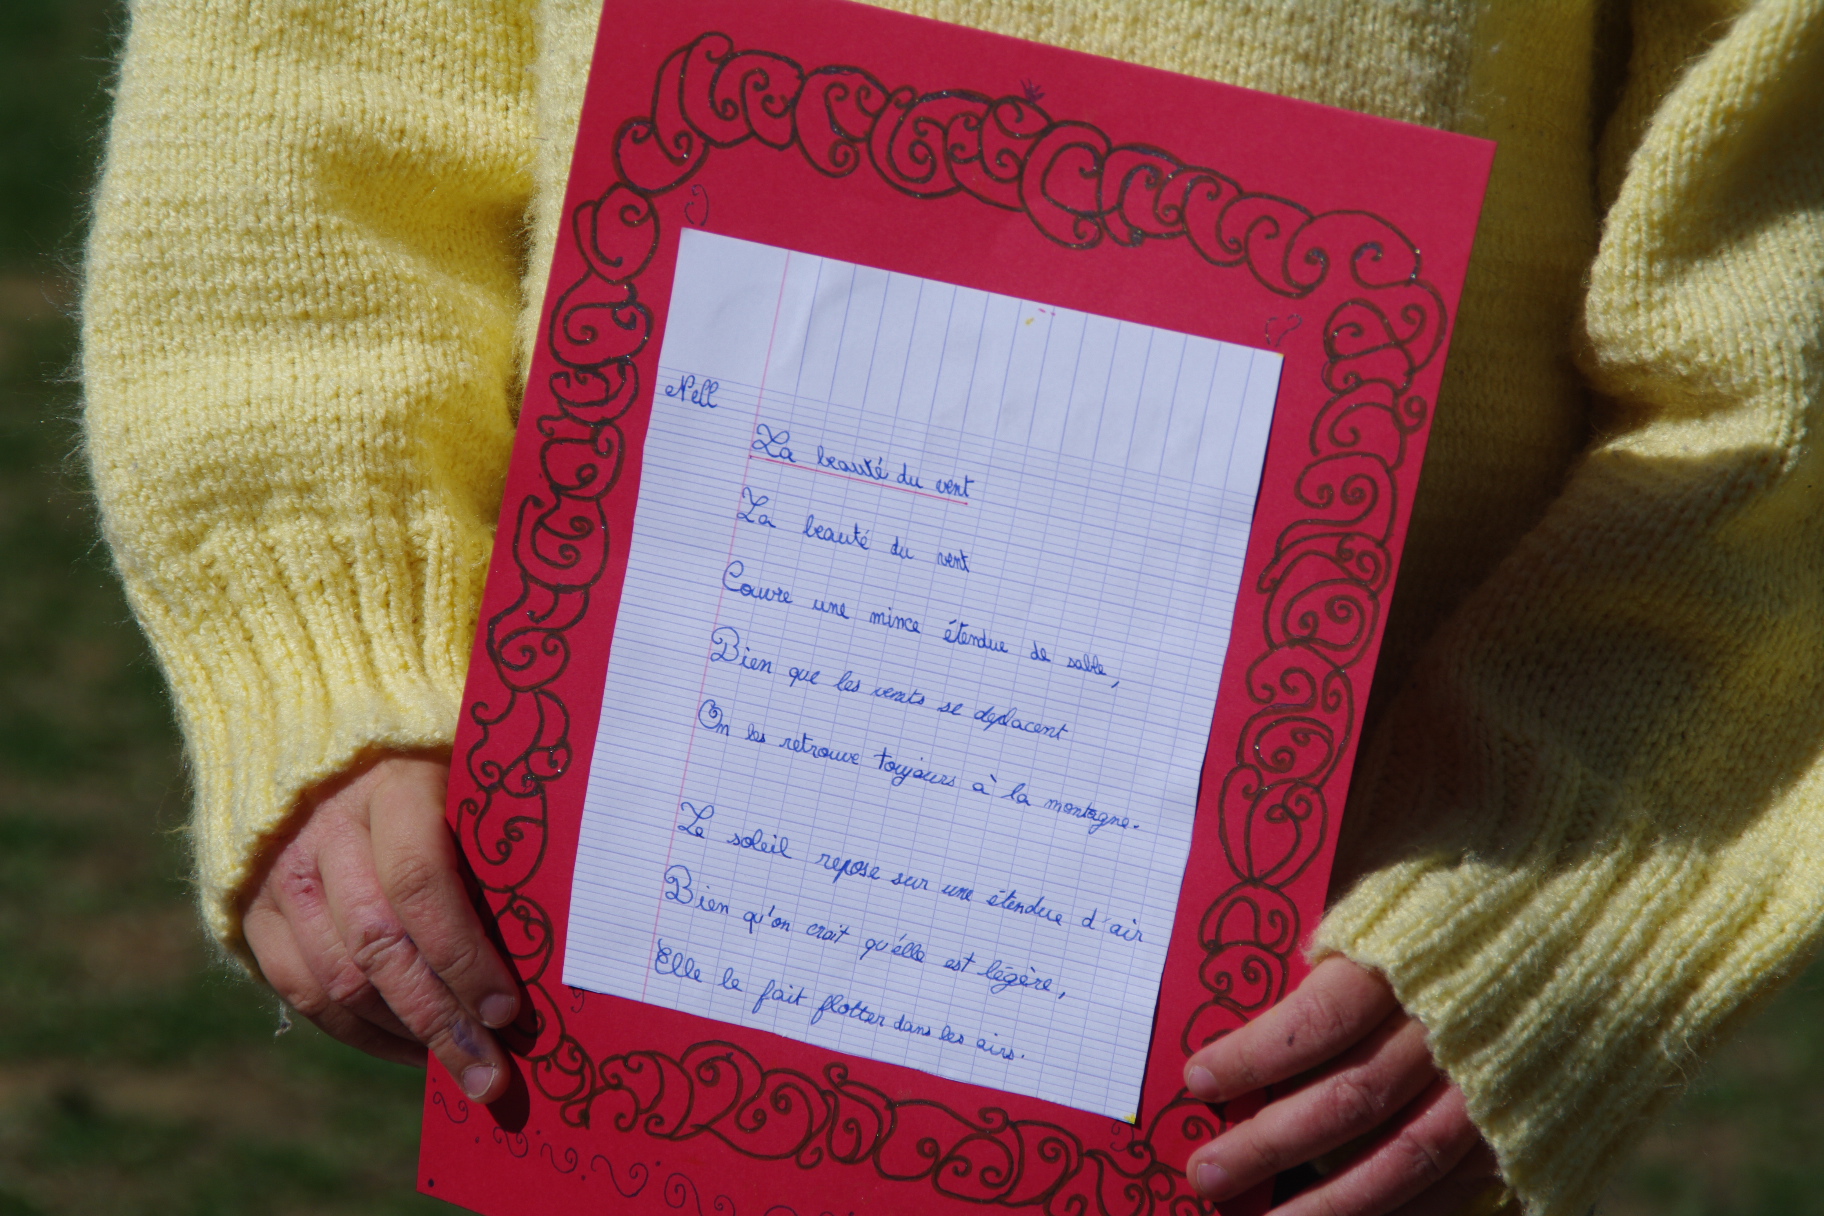 Nell
La beauté du vent
La beauté du vent
Couvre une mince étendue de sable,
Bien que les vents se deplacent
On les retrouve toujours à la montagne.
Le soleil repose sur une étendue d'air
Bien qu'on crait qu'elle est légère,
Elle le fait flotter dans les airs.